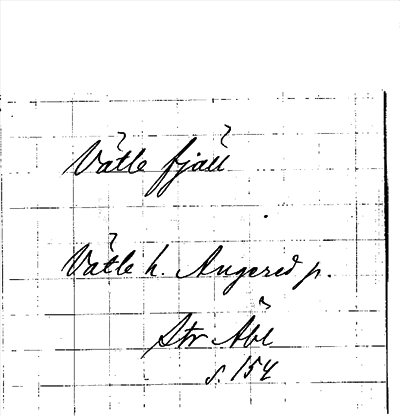 Vätle fjäll
Vätle h. Angered p.
Str Åbl
s. 154